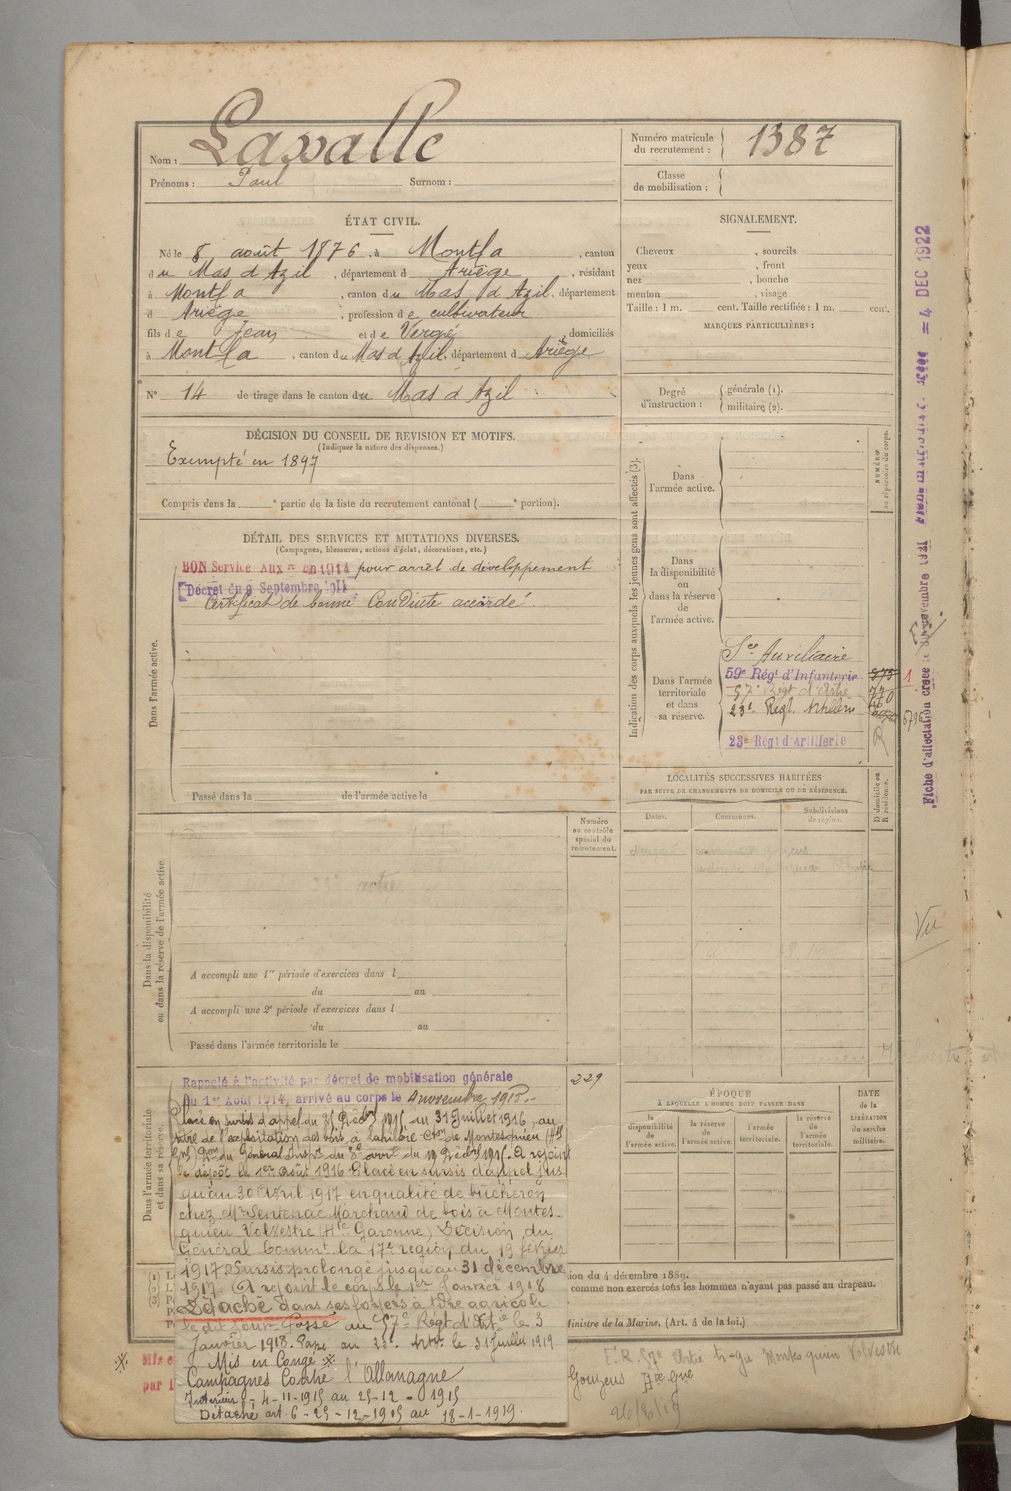 Nom : Lavalle
Prénoms : Paul Surnom :
Numéro matricule du recrutement : 1387
Classe de mobilisation :
ÉTAT CIVIL.
Né le 8 août 1876, à Montfa, canton
du Mas d'Azil, département d Ariège, résidant
à Montfa, canton du Mas d'Azil, département
d Ariège, profession de cultivateur
fils de Jean et de Vergé, domiciliés
à Montfa, canton du Mas d'Azil, département d Ariège
N° 14 de tirage dans le canton du Mas d'Azil
SIGNALEMENT.
Cheveux , sourcils
yeux , front
nez , bouche
menton , visage
Taille : 1 m. cent. Taille rectifiée : 1 m. cent.
MARQUES PARTICULIÈRES :
Degré d'instruction : générale (1).
militaire (2).
DÉCISION DU CONSEIL DE REVISION ET MOTIFS.
(Indiquer la nature des dispenses.)
Exempté en 1897
Compris dans la e partie de la liste du recrutement cantonal ( e portion).
DÉTAIL DES SERVICES ET MUTATIONS DIVERSES.
(Campagnes, blessures, actions d'éclat, décorations, etc.)
BON Service Aux re en 1914 pour arrêt de développement
Décret du 9 Septembre 1914
Certificat de bonne Conduite accordé
Dans l'armée active.
Passé dans la de l'armée active le
Indication des corps auxquels les jeunes gens sont affectés (3).
NUMÉRO au répertoire du corps.
Dans l'armée active.
Dans la disponibilité ou dans la réserve de l'armée active.
Dans l'armée territoriale et dans sa réserve.
Sce Auxiliaire
59e Régt d'Infanterie
57e Regt d'Artie
23e Regt Artillerie
23e Régt d'Artillerie
R
LOCALITÉS SUCCESSIVES HABITÉES
PAR SUITE DE CHANGEMENTS DE DOMICILE OU DE RÉSIDENCE.
Dates. Communes. Subdivisions de région. D domicile ou R résidence.
Numéro au contrôle spécial du recrutement.
229
Dans la disponibilité ou dans la réserve de l'armée active.
A accompli une 1re période d'exercices dans l
du au
A accompli une 2e période d'exercices dans l
du au
Passé dans l'armée territoriale le
Dans l'armée territoriale et dans sa réserve.
Rappelé à l'activité par décret de mobilisation générale
du 1er Août 1914, arrivé au corps le 4 novembre 1915.-
Placé en sursis d'appel du 25 Décbre 1915 au 31 Juillet 1916, au
titre de l'exploitation des bois, à Cne de Montesquieu
du Général
le dépôt le 1er août 1916 Placé en sursis d'appel jus
qu'au 30 avril 1917 en qualité de bûcheron
chez Mr Sentenac Marchand de bois à Montes-
quieu Volvestre (Hte Garonne) Décision du
Général Commt la 17e région du 19 février
1917. Sursis prolongé jusqu'au 31 décembre
1917. A rejoint le corps le 1er Janvier 1918
Détaché dans ses foyers à titre agricole
le dit jour. Passé au 57e Régt d'Artie le 3
Janvier 1918. Passé au 23e Artie le 31 Juillet 1919
Mis en Congé
Campagnes Contre l'Allemagne
Intérieur - 4-11-1915 au 25-12-1915
Détaché art. 6 - 25-12-1915 au 18-1-1919.
ÉPOQUE
À LAQUELLE L'HOMME DOIT PASSER DANS
la disponibilité de l'armée active. la réserve de l'armée active. l'armée territoriale. la réserve de l'armée territoriale.
DATE de la LIBÉRATION du service militaire.
ion du 4 décembre 1889.
comme non exercés tous les hommes n'ayant pas passé au drapeau.
Ministre de la Marine. (Art. 4 de la loi.)
Montesquieu Volvestre
Gouzens
26/8/19
Fiche d'affectation créée le novembre 1921
= 4 DEC 1922
Vu